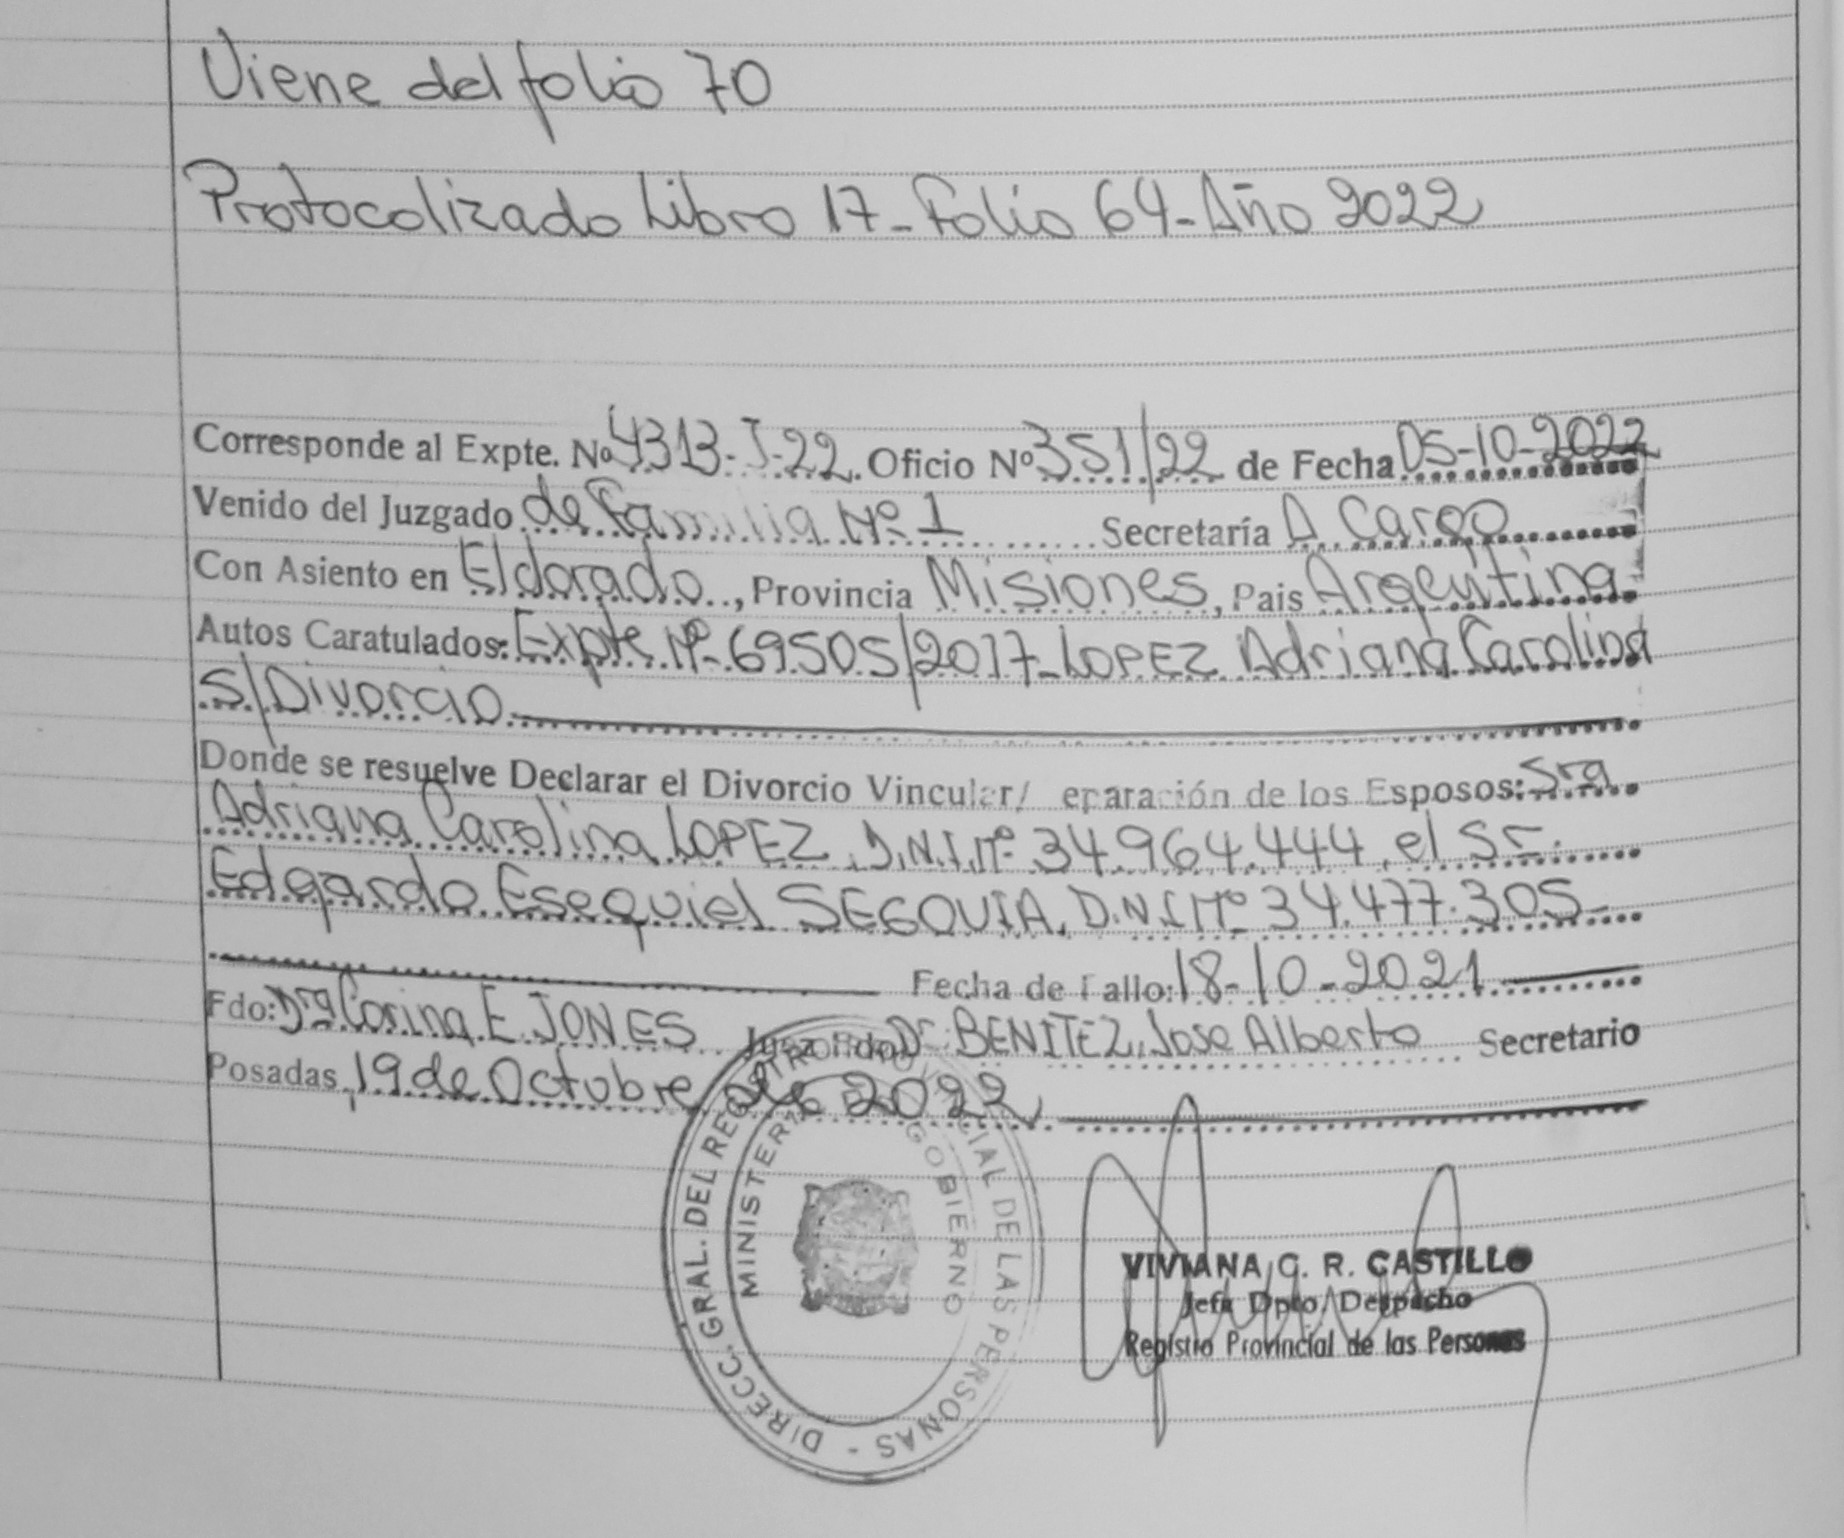 Viene del folio 70
Protocolizado Libro 17-Folio 64-Año 2022
Corresponde al Expte. Nº 4313-J-22. Oficio Nº 351/22 de Fecha 05-10-2022
Venido del Juzgado de Familia Nº 1 Secretaría A Cargo
Con Asiento en Eldorado, Provincia Misiones, Pais Argentina
Autos Caratulados: Expte Nº 69505/2017-LOPEZ Adriana Carolina
S/Divorcio
Donde se resuelve Declarar el Divorcio Vincular/ eparación de los Esposos: Sra
Adriana Carolina LOPEZ, D.N.I.Nº 34.964.444, el Sr.
Edgardo Esequiel SEGOVIA, D.N.I Nº 34.477.305-
Fecha de Fallo: 18-10-2021
Fdo: Dra Corina E JONES Juez Fdo Dr. BENITEZ, Jose Alberto Secretario
Posadas, 19 de Octubre de 2022
DIRECC. GRAL. DEL REGISTRO PROVINCIAL DE LAS PERSONAS -
MINISTERIO DE GOBIERNO
VIVIANA C. R. CASTILLO
Jefa Dpto. Despacho
Registro Provincial de las Personas